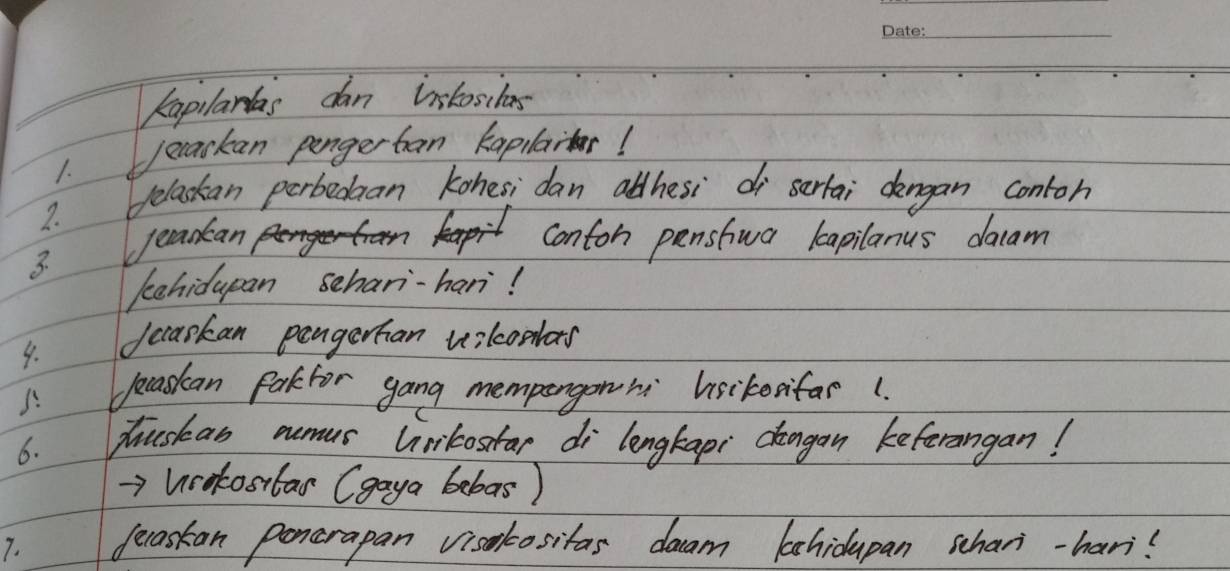 Date:
Kapilaritas dan Viskositas
1. Jelaskan pengertian kapilaritas !
2. Jelaskan perbedaan kohesi dan adhesi di sertai dengan contoh
3. Jelaskan pengertian kapil contoh peristiwa kapilaritas dalam
kehidupan sehari-hari !
4. Jelaskan pengertian viskositas
5. Jelaskan faktor yang mempengaruhi visikositas !
6. Tuliskan rumus visikositas di lengkapi dengan keterangan !
→ Viskositas (gaya bebas)
7. Jelaskan penerapan viskositas dalam kehidupan sehari-hari !